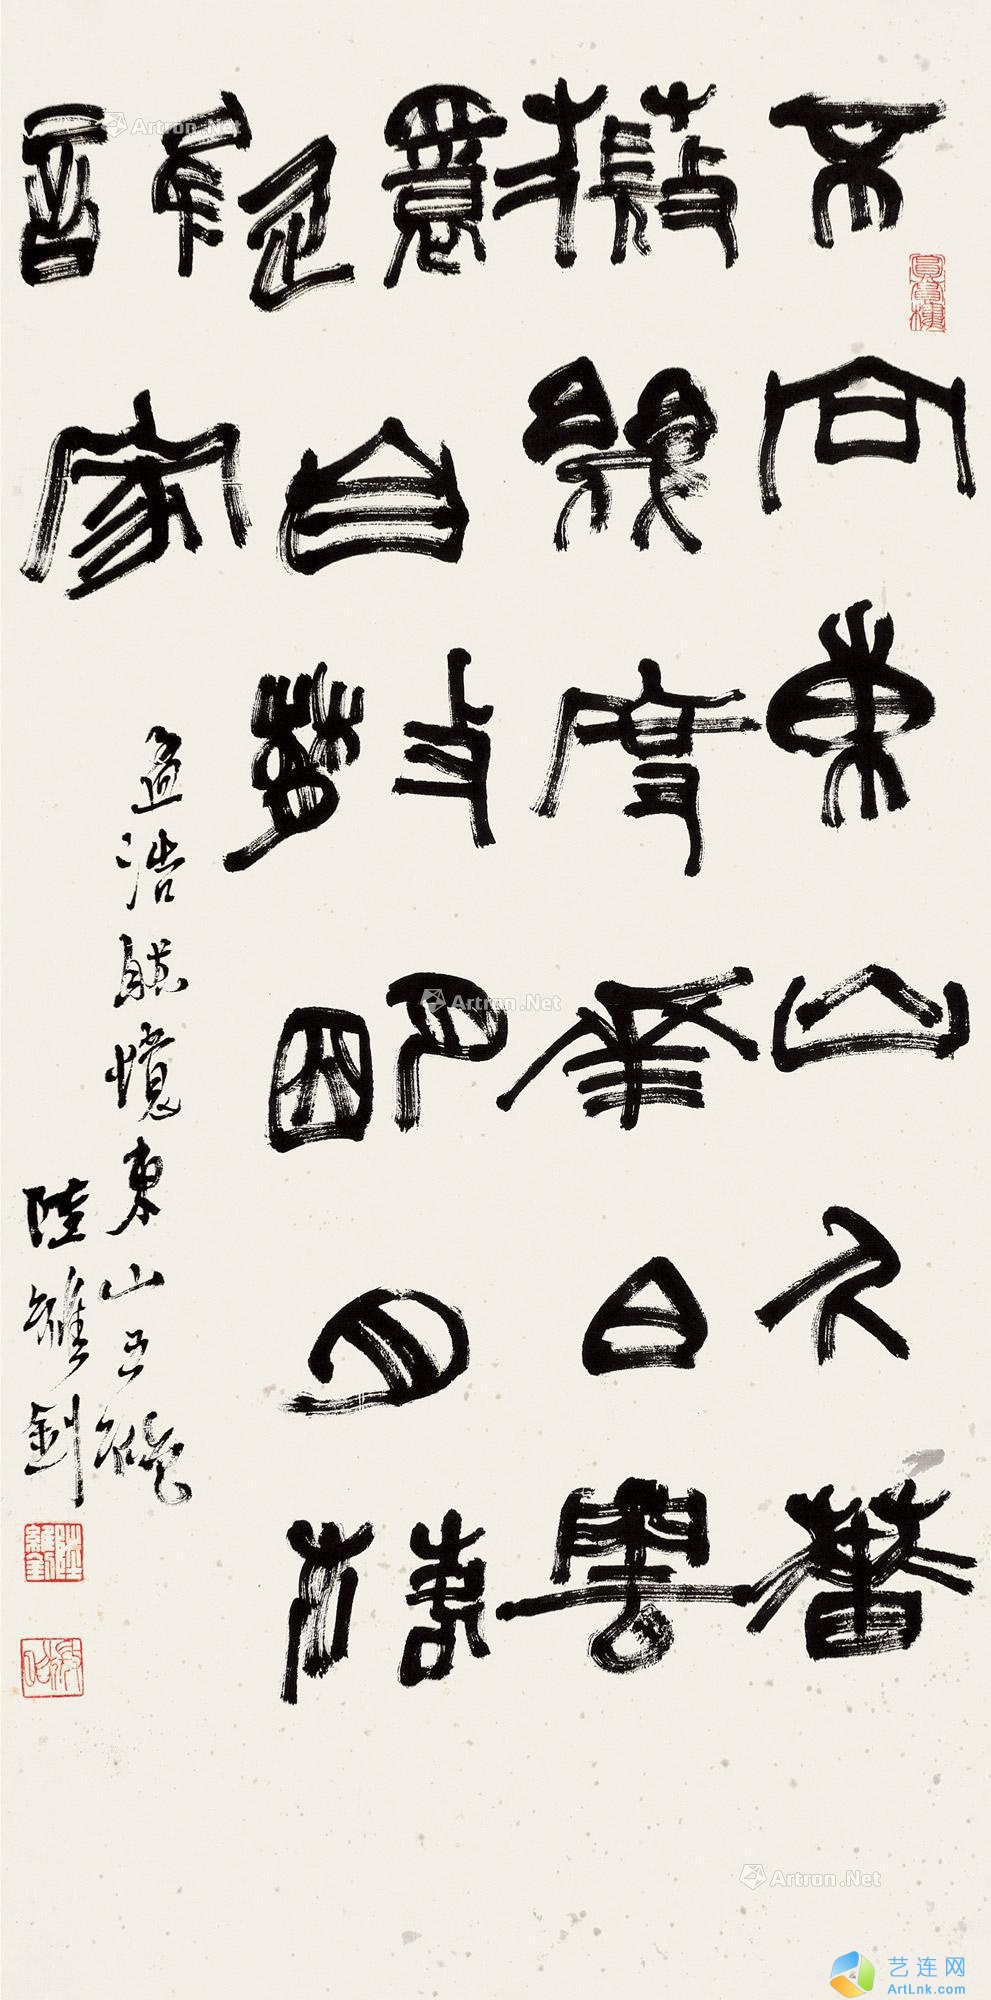 不向東山久薔
薇幾度華白雲
還自散明月落
誰家
孟浩然憶東山五絕
陸維釗
圓賞樓
陸維釗
Artron.Net
Artron.Net
Artron.Net
艺连网
ArtLnk.com